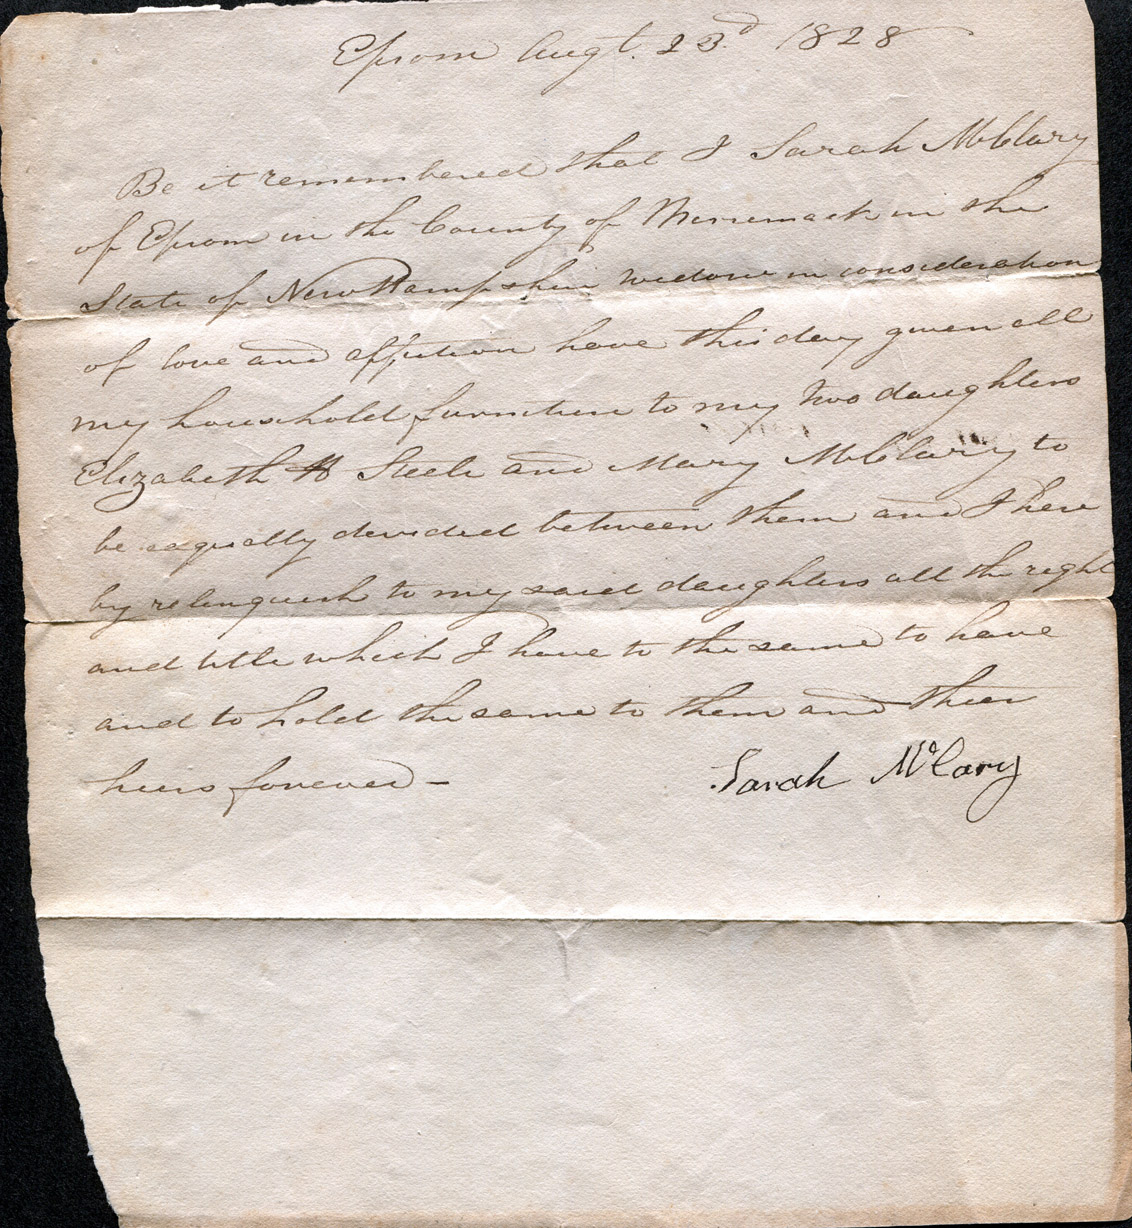 Epsom Augt. 23d 1828
Be it remembered that I Sarah McClary
of Epsom in the County of Merremack in the
State of New Hampshire widow in consideration
of love and affection have this day given all
my household furniture to my two daughters
Elizabeth H Steele and Mary McClary to
be eaqually devided between them and I here
by relinquish to my said daughters all the right
and title which I have to the same to have
and to hold the same to them and their
heirs forever -
Sarah McClary